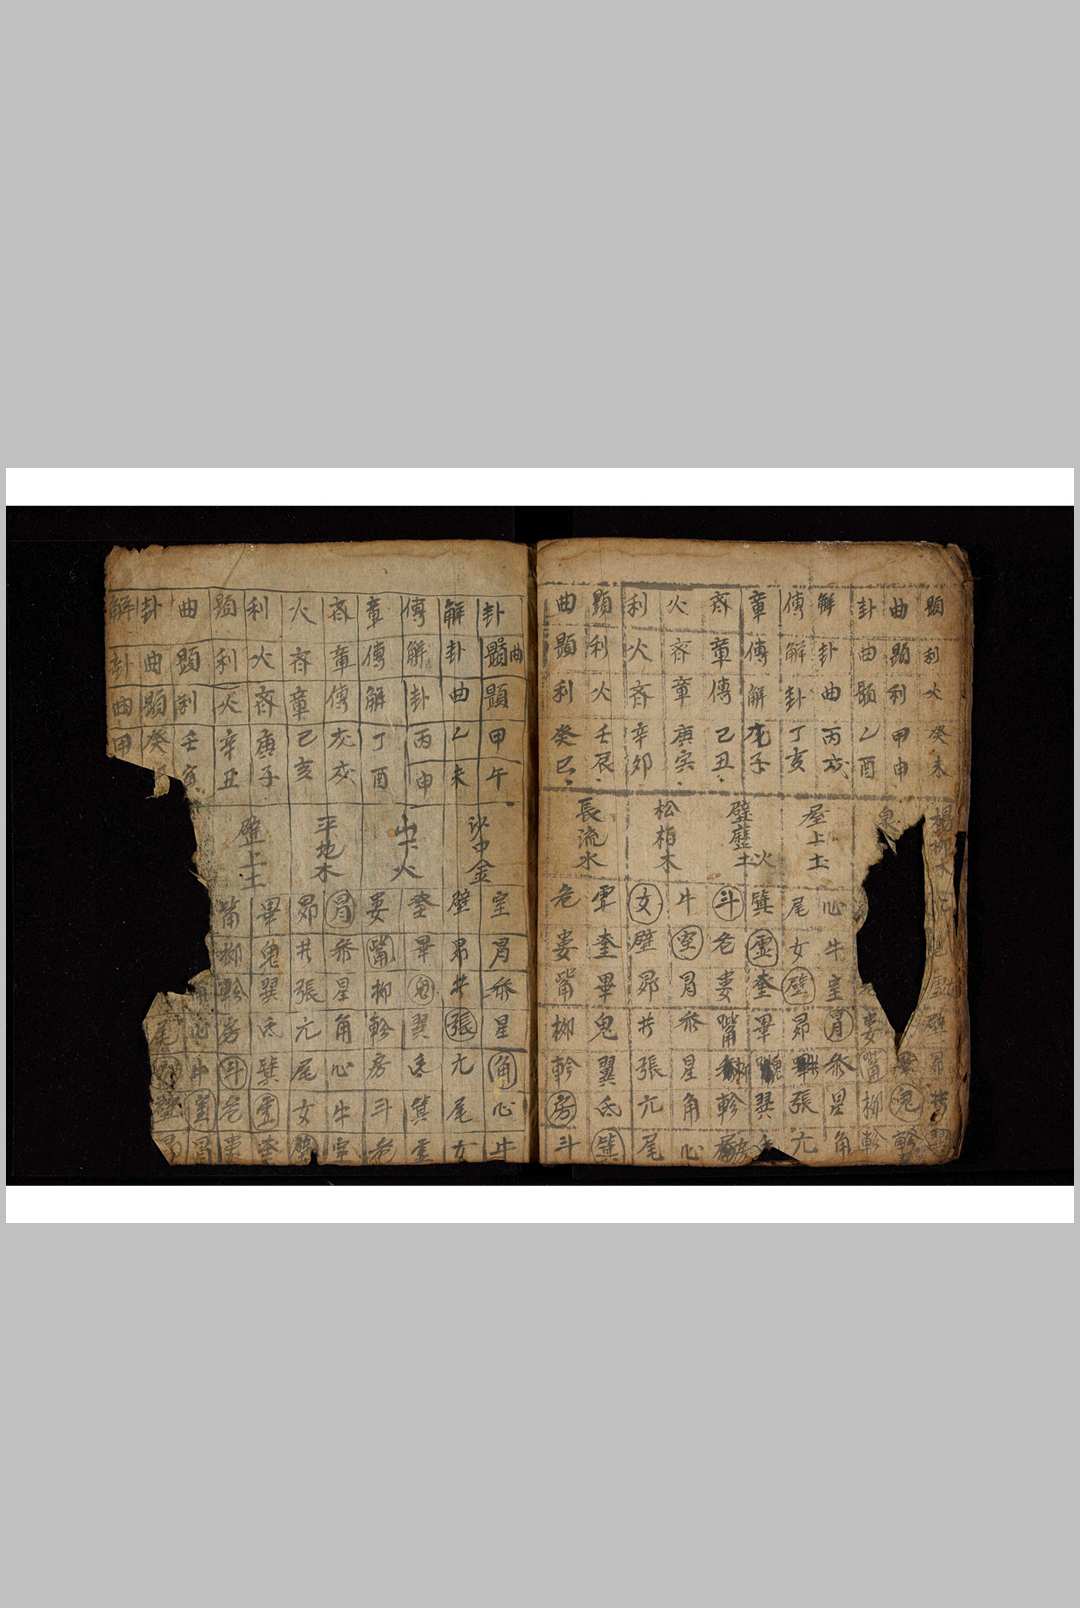 顕利火癸未
曲顕利甲申
卦曲顕乙酉
解卦曲丙戌
傳解卦丁亥
章傳解戊子
斉章傳己丑
火斉章庚寅
利火斉辛卯
顕利火壬辰
曲顕利癸巳
楊柳木
泉
屋上土
霹靂火
松柏木
長流水
虛壁昴井翼
鬼軫
婁觜柳軫
心牛室胃参星角
尾女壁昴井張亢
箕虛奎畢鬼翼氐
斗危婁觜柳軫房
牛室胃参星角心
女壁昴井張亢尾
虛奎畢鬼翼氐箕
危婁觜柳軫房斗
卦顕曲顕甲午
解卦曲乙未
傳解卦丙申
章傳解丁酉
斉章傳戊戌
火斉章己亥
利火斉庚子
顕利火辛丑
曲顕利壬寅
卦曲顕癸
解卦曲甲
沙中金
山下火
平地木
壁上土
室胃参星角心牛
壁昴井張亢尾女
奎畢鬼翼氐箕虛
婁觜柳軫房斗危
胃参星角心牛室
昴井張亢尾女壁
畢鬼翼氐箕虛奎
觜柳軫房斗危婁
角心牛室胃
尾女壁昴